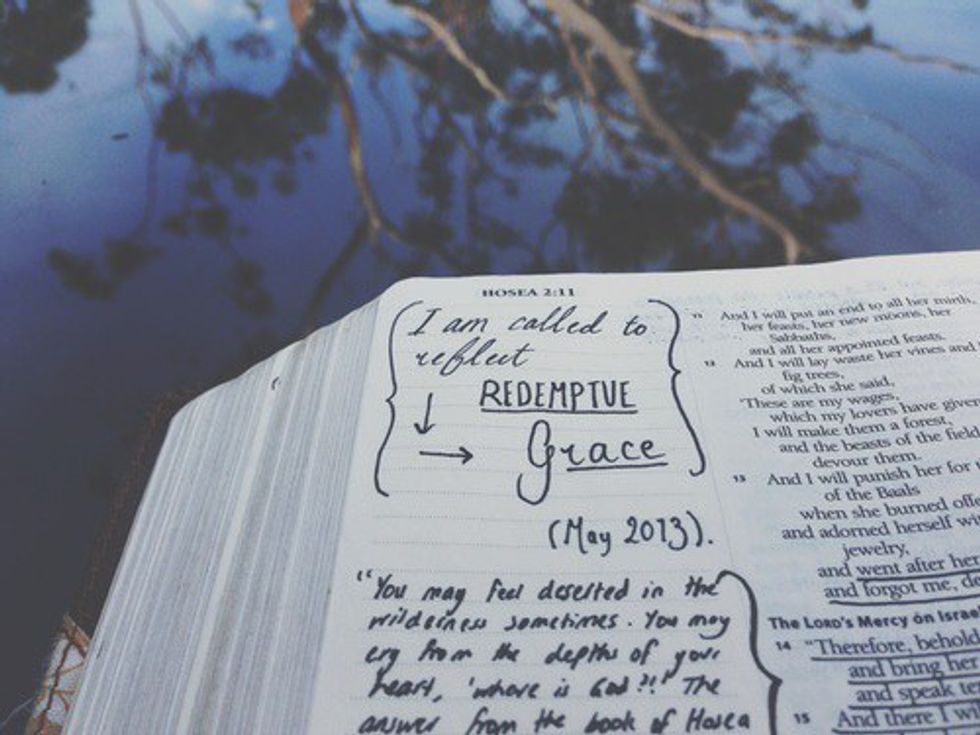 HOSEA 2:11
I am called to
reflect
REDEMPTVE
Grace
(May 2013).
"You may feel deserted in the
wilderness sometimes. You may
cry from the depths of your
heart, 'where is God?!' The
answer from the book of Hosea
11 And I will put an end to all her mirth,
her feasts, her new moons, her
Sabbaths,
and all her appointed feasts.
12 And I will lay waste her vines and
fig trees,
of which she said,
'These are my wages,
which my lovers have given
I will make them a forest,
and the beasts of the field
devour them.
13 And I will punish her for
of the Baals
when she burned offe
and adorned herself wi
jewelry,
and went after her
and forgot me, de
The LORD's Mercy on Israe
14 "Therefore, behold
and bring her
and speak te
15 And there I wi